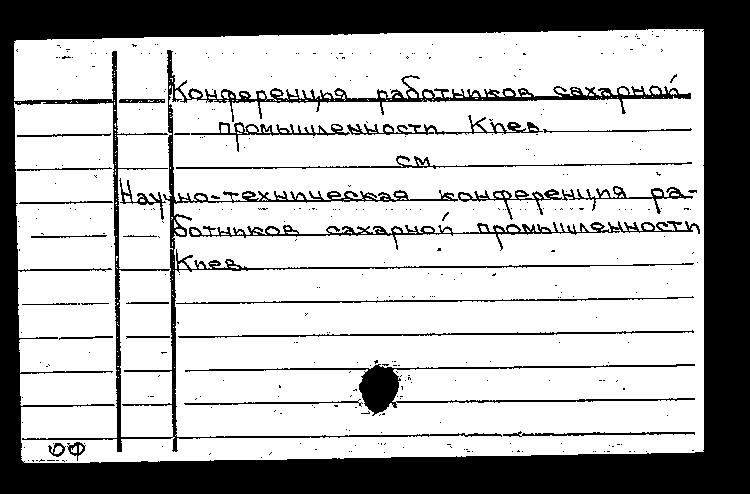 Конференция работников сахарной
промышленности. Киев.
см.
Научно-техническая конференция ра-
ботников сахарной промышленности
Киев.